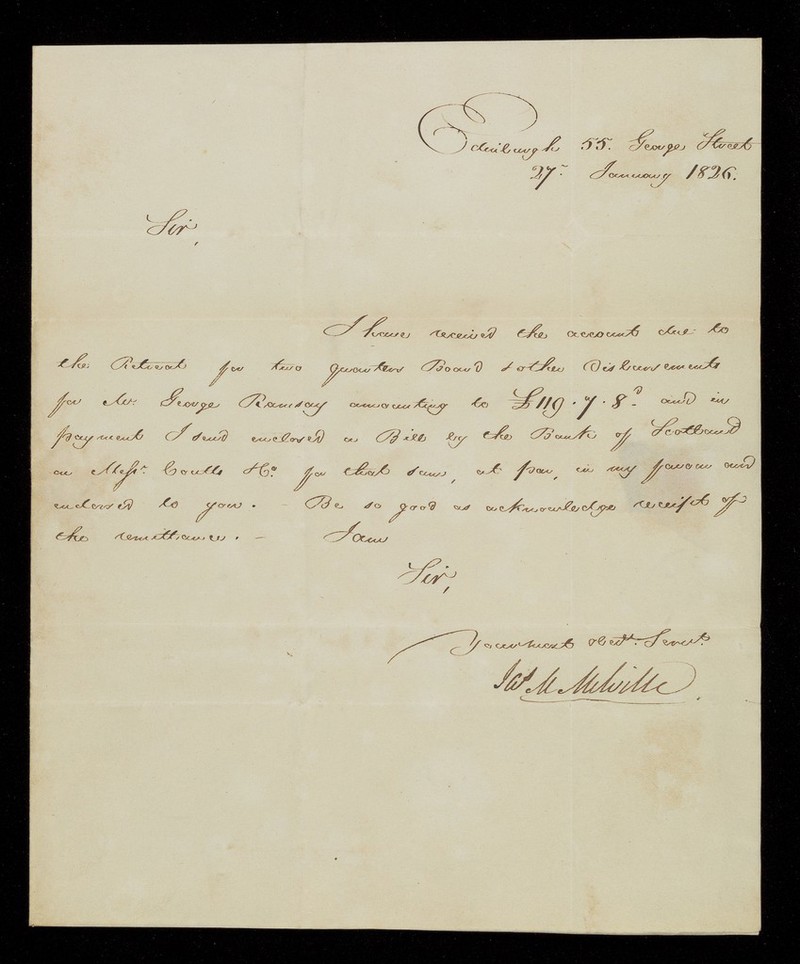 Edinburgh 55. George Street
27th January 1826.
Sir,
I have received the account due to
the Retreat for two quarters Board & other Disbursements
for Mr. George Ramsay amounting to £119.7.8d and in
payment I send enclosed a Bill by the Bank of Scotland
on Messrs. Coutts & Co. for that sum, at par, in my favour and
endorsed to you. - Be so good as acknowledge receipt of
the remittance. - I am
Sir,
Your most obedt. Servt.
Jas. M. Melville